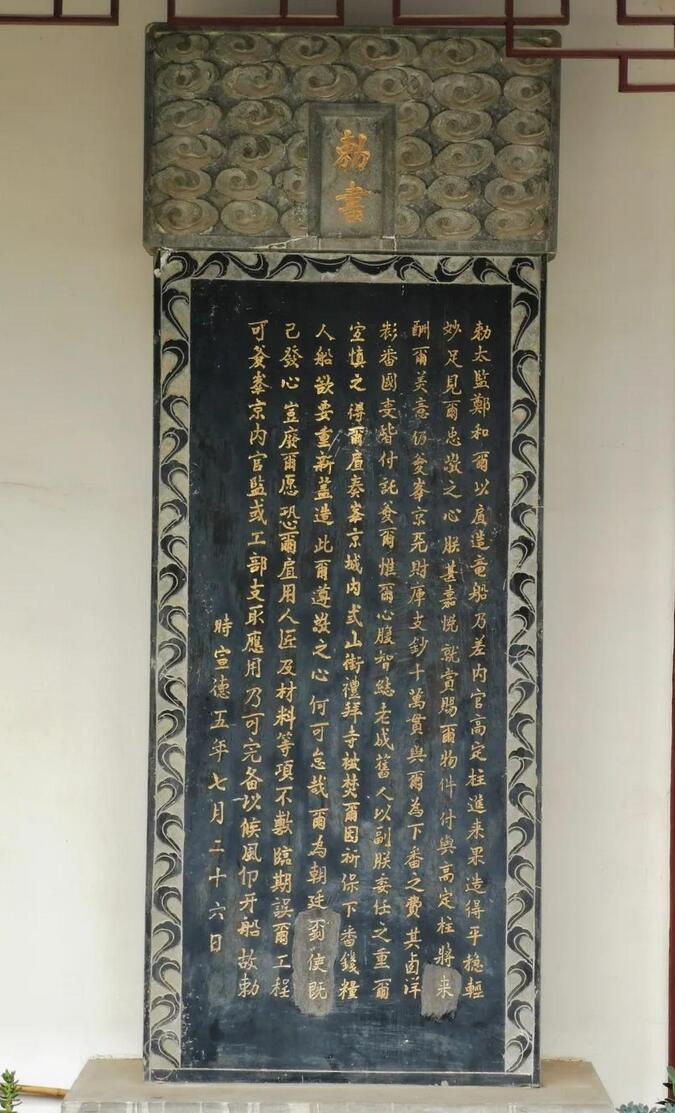 勅書
勅太監鄭和爾以盾造竜船乃差内官高定柱進来果造得平穏輕
妙足見爾忠敬之心朕甚嘉悦就賁賜爾物件付與高定柱將来
酬爾美意仍發峯京天財庫支鈔十萬貫與爾為下番之費其西洋
諸番國事皆付託於爾惟爾心腹智慧老成舊人以副朕委任之重爾
宜慎之得爾盾奏峯京城内弍山街禮拜寺被焚爾因祈保下番錢糧
人船欲要重新蓋造此爾遵敬之心何可怠哉爾為朝廷使既
已發心豈廢爾愿恐爾盾用人匠及材料等項不敷臨期誤爾工程
可於峯京内官監或工部支取應用乃可完备以候風仰开船故勅
時宣德五年七月二十六日